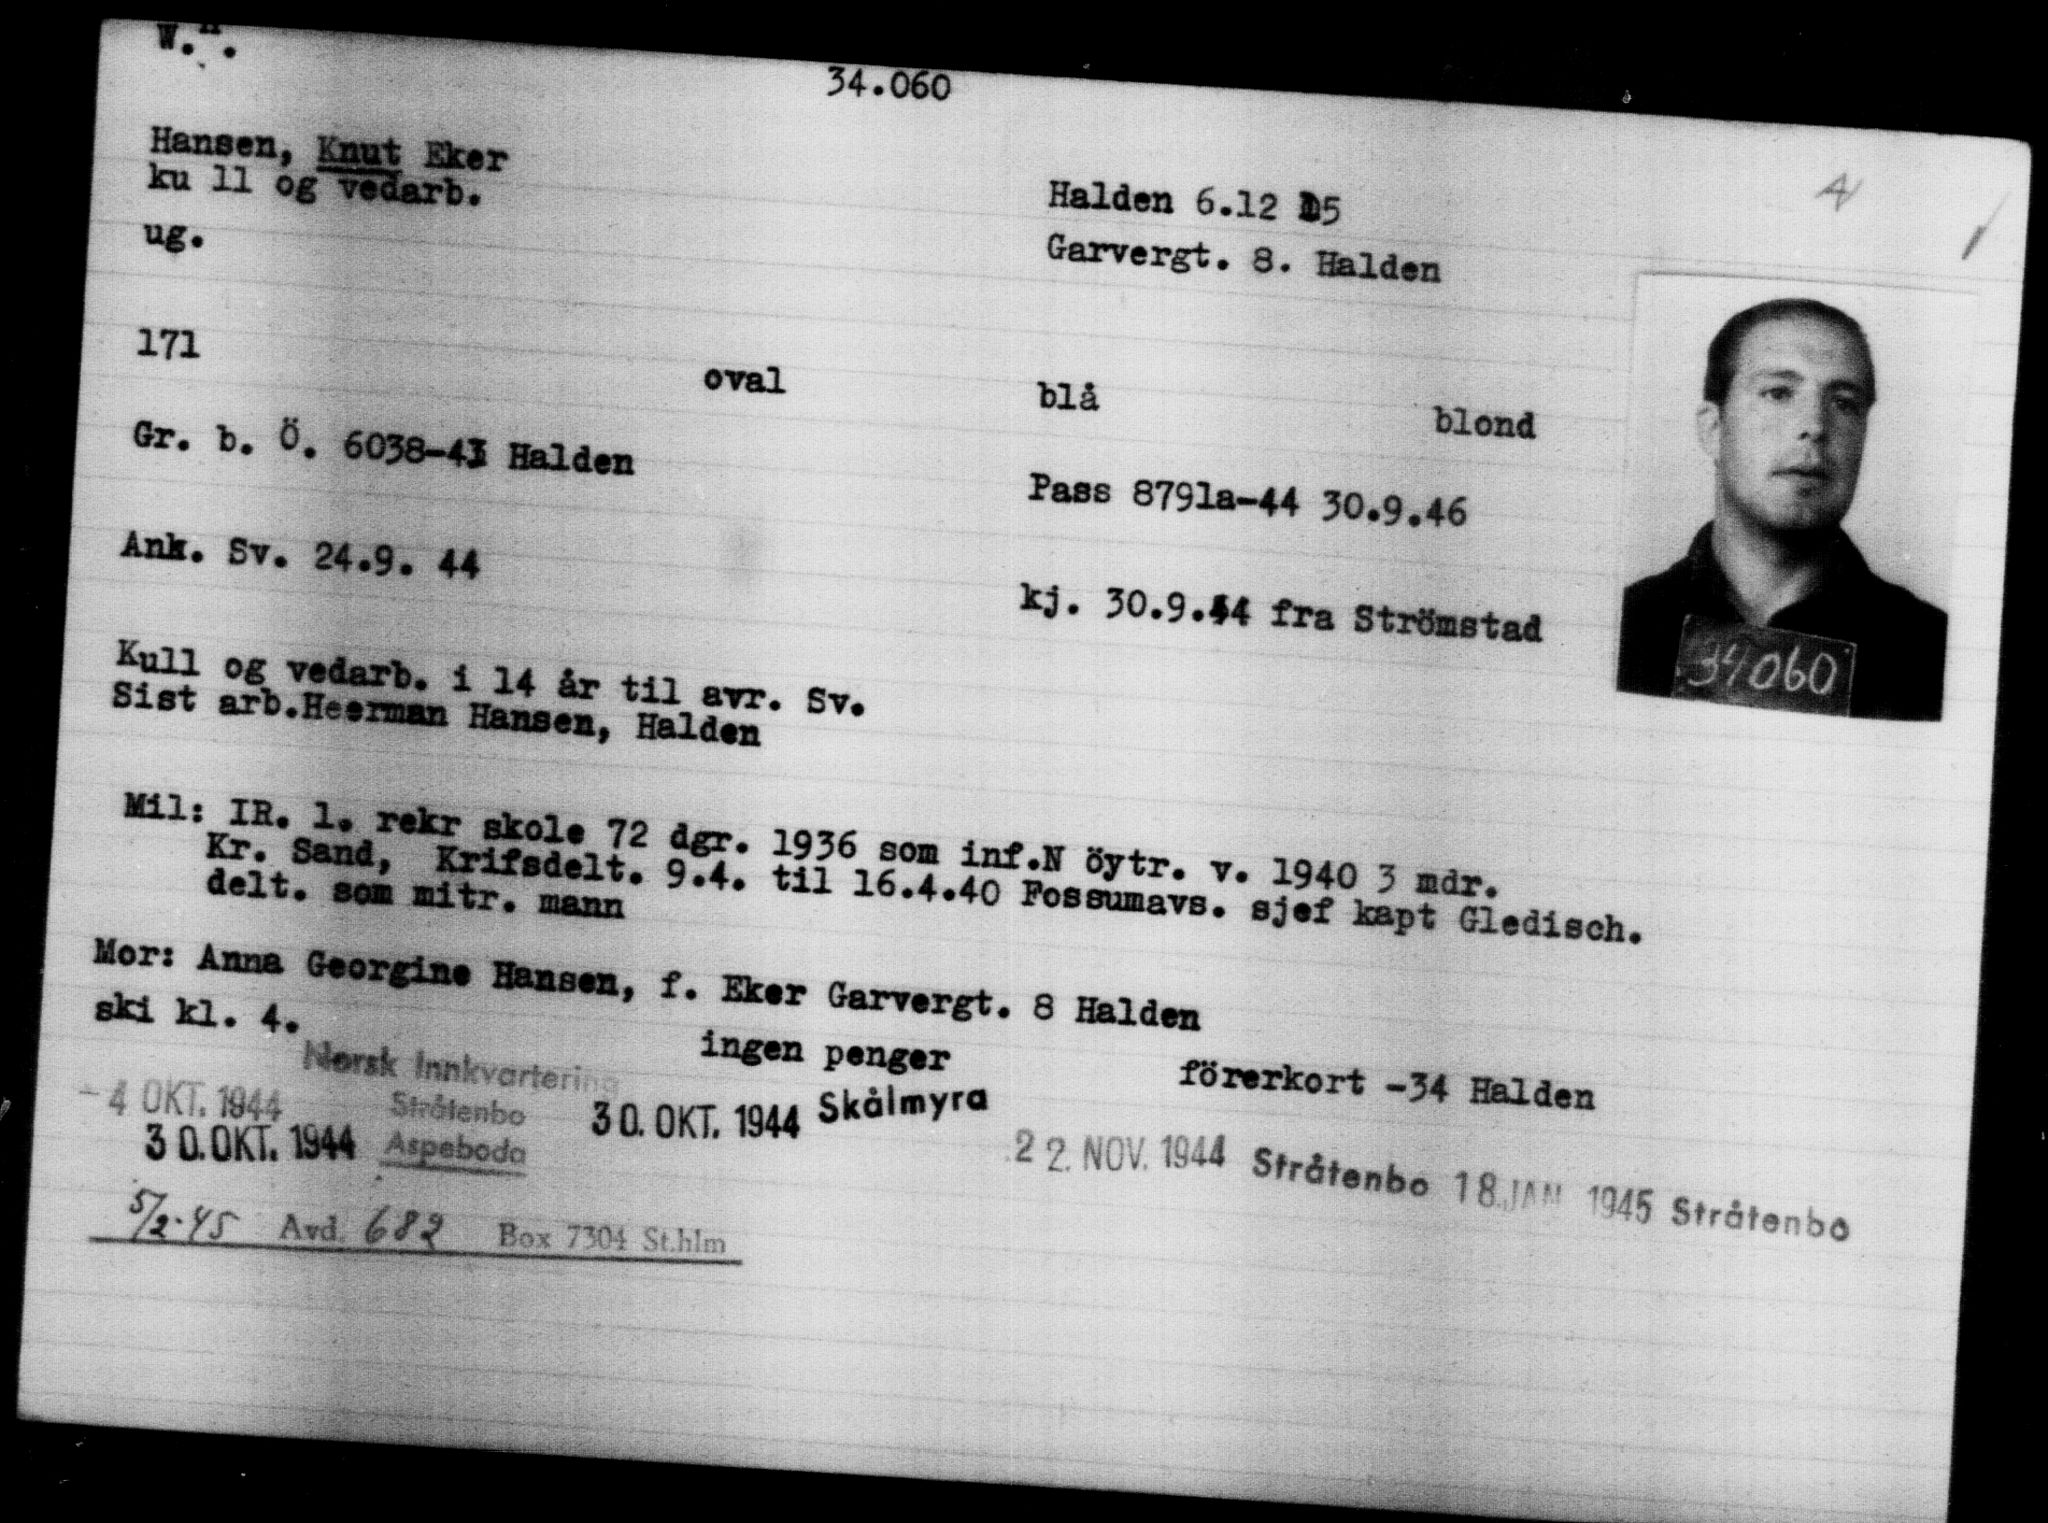 34.060
Hansen, Knut Eker
ku ll og vedarb.
Halden 6.12 15
ug.
Garvergt. 8. Halden
171
oval
blå
blond
Gr. b. Ö. 6038-43 Halden
Pass 8791a-44 30.9.46
Ank. Sv. 24.9. 44
kj. 30.9.44 fra Strömstad
34060
Kull og vedarb. i 14 år til avr. Sv.
Sist arb.Heerman Hansen, Halden
Mil: IR. 1. rekr skole 72 dgr. 1936 som inf.N öytr. v. 1940 3 mdr.
Kr. Sand, Krifsdelt. 9.4. til 16.4.40 Fossumavs. sjef kapt Gledisch.
delt. som mitr. mann
Mor: Anna Georgine Hansen, f. Eker Garvergt. 8 Halden
ski kl. 4.
ingen penger
förerkort -34 Halden
Norsk Innkvartering
- 4 OKT. 1944 Stråtenbo
30. OKT. 1944 Skålmyra
30. OKT. 1944 Aspeboda
22. NOV. 1944 Stråtenbo 18. JAN 1945 Stråtenbo
5/2-45 Avd. 682 Box 7304 St.hlm